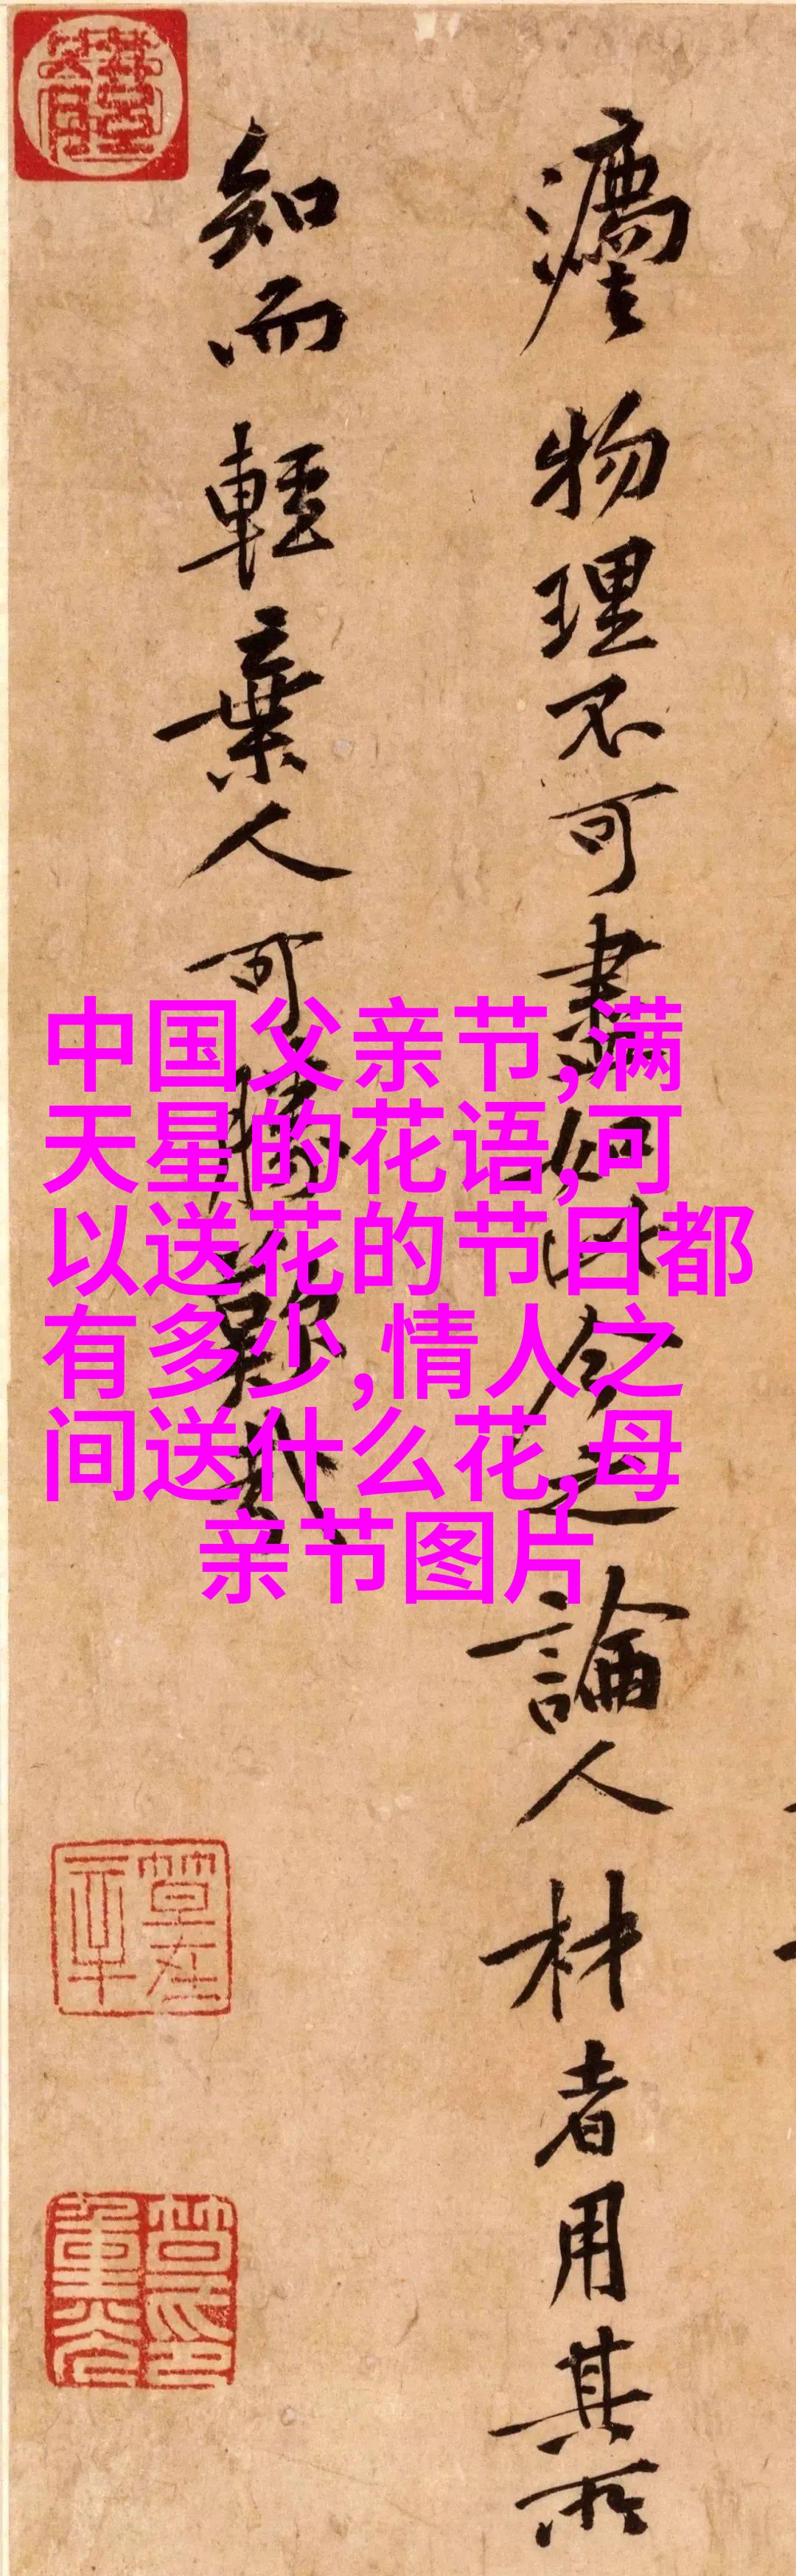 物理不可盡如此今之論人材者用其所
知而輕棄人可勝歎哉
中国父亲节,满
天星的花语,可
以送花的节日都
有多少,情人之
间送什么花,母
亲节图片